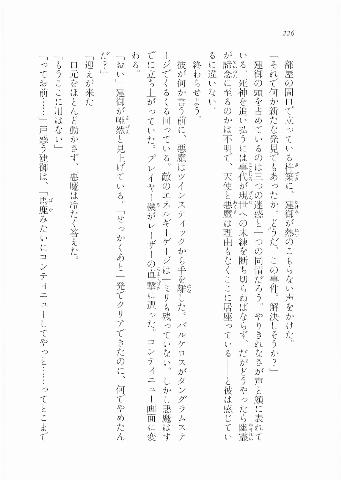 226
部屋の間口で立っている杜葉に、建御が熱のこもらない声をかけた。
「それで何か新たな発見でもあったか。どうだ、この事件、解決しそうか？」
建御の頭を占めているのは三つの迷惑と一つの同情だろう。やりきれなさが声と顔に表れて
いる。死神を追い払うには事代が現世への未練を断ち切らねばならず、だがどうやったら幽霊
が諦念に至るのかは不明で、天使と悪魔は理由もなくここに居座っている――と彼は感じてい
るに違いない。
終わらせよう。
彼が何か言う前に、悪魔はツインスティックから手を離した。バルケロスがタングラムステ
ージでくるくる回っている。敵のエネルギーゲージは一ミリも残っていない。しかし悪魔はす
でに立ち上がっていた。プレイヤー機がレーザーの直撃に遇った。コンティニュー画面に変
わる。
「おい」建御が唖然と見上げている。「せっかくあと一発でクリアできたのに、何でやめたん
だ？」
「迎えが来た」
口元をほとんど動かさず、悪魔は冷たく答えた。
「もうここに用はない」
「ってお前……」戸惑う建御は、「悪魔みたいにコンティニューしてやっと……ってとこまで